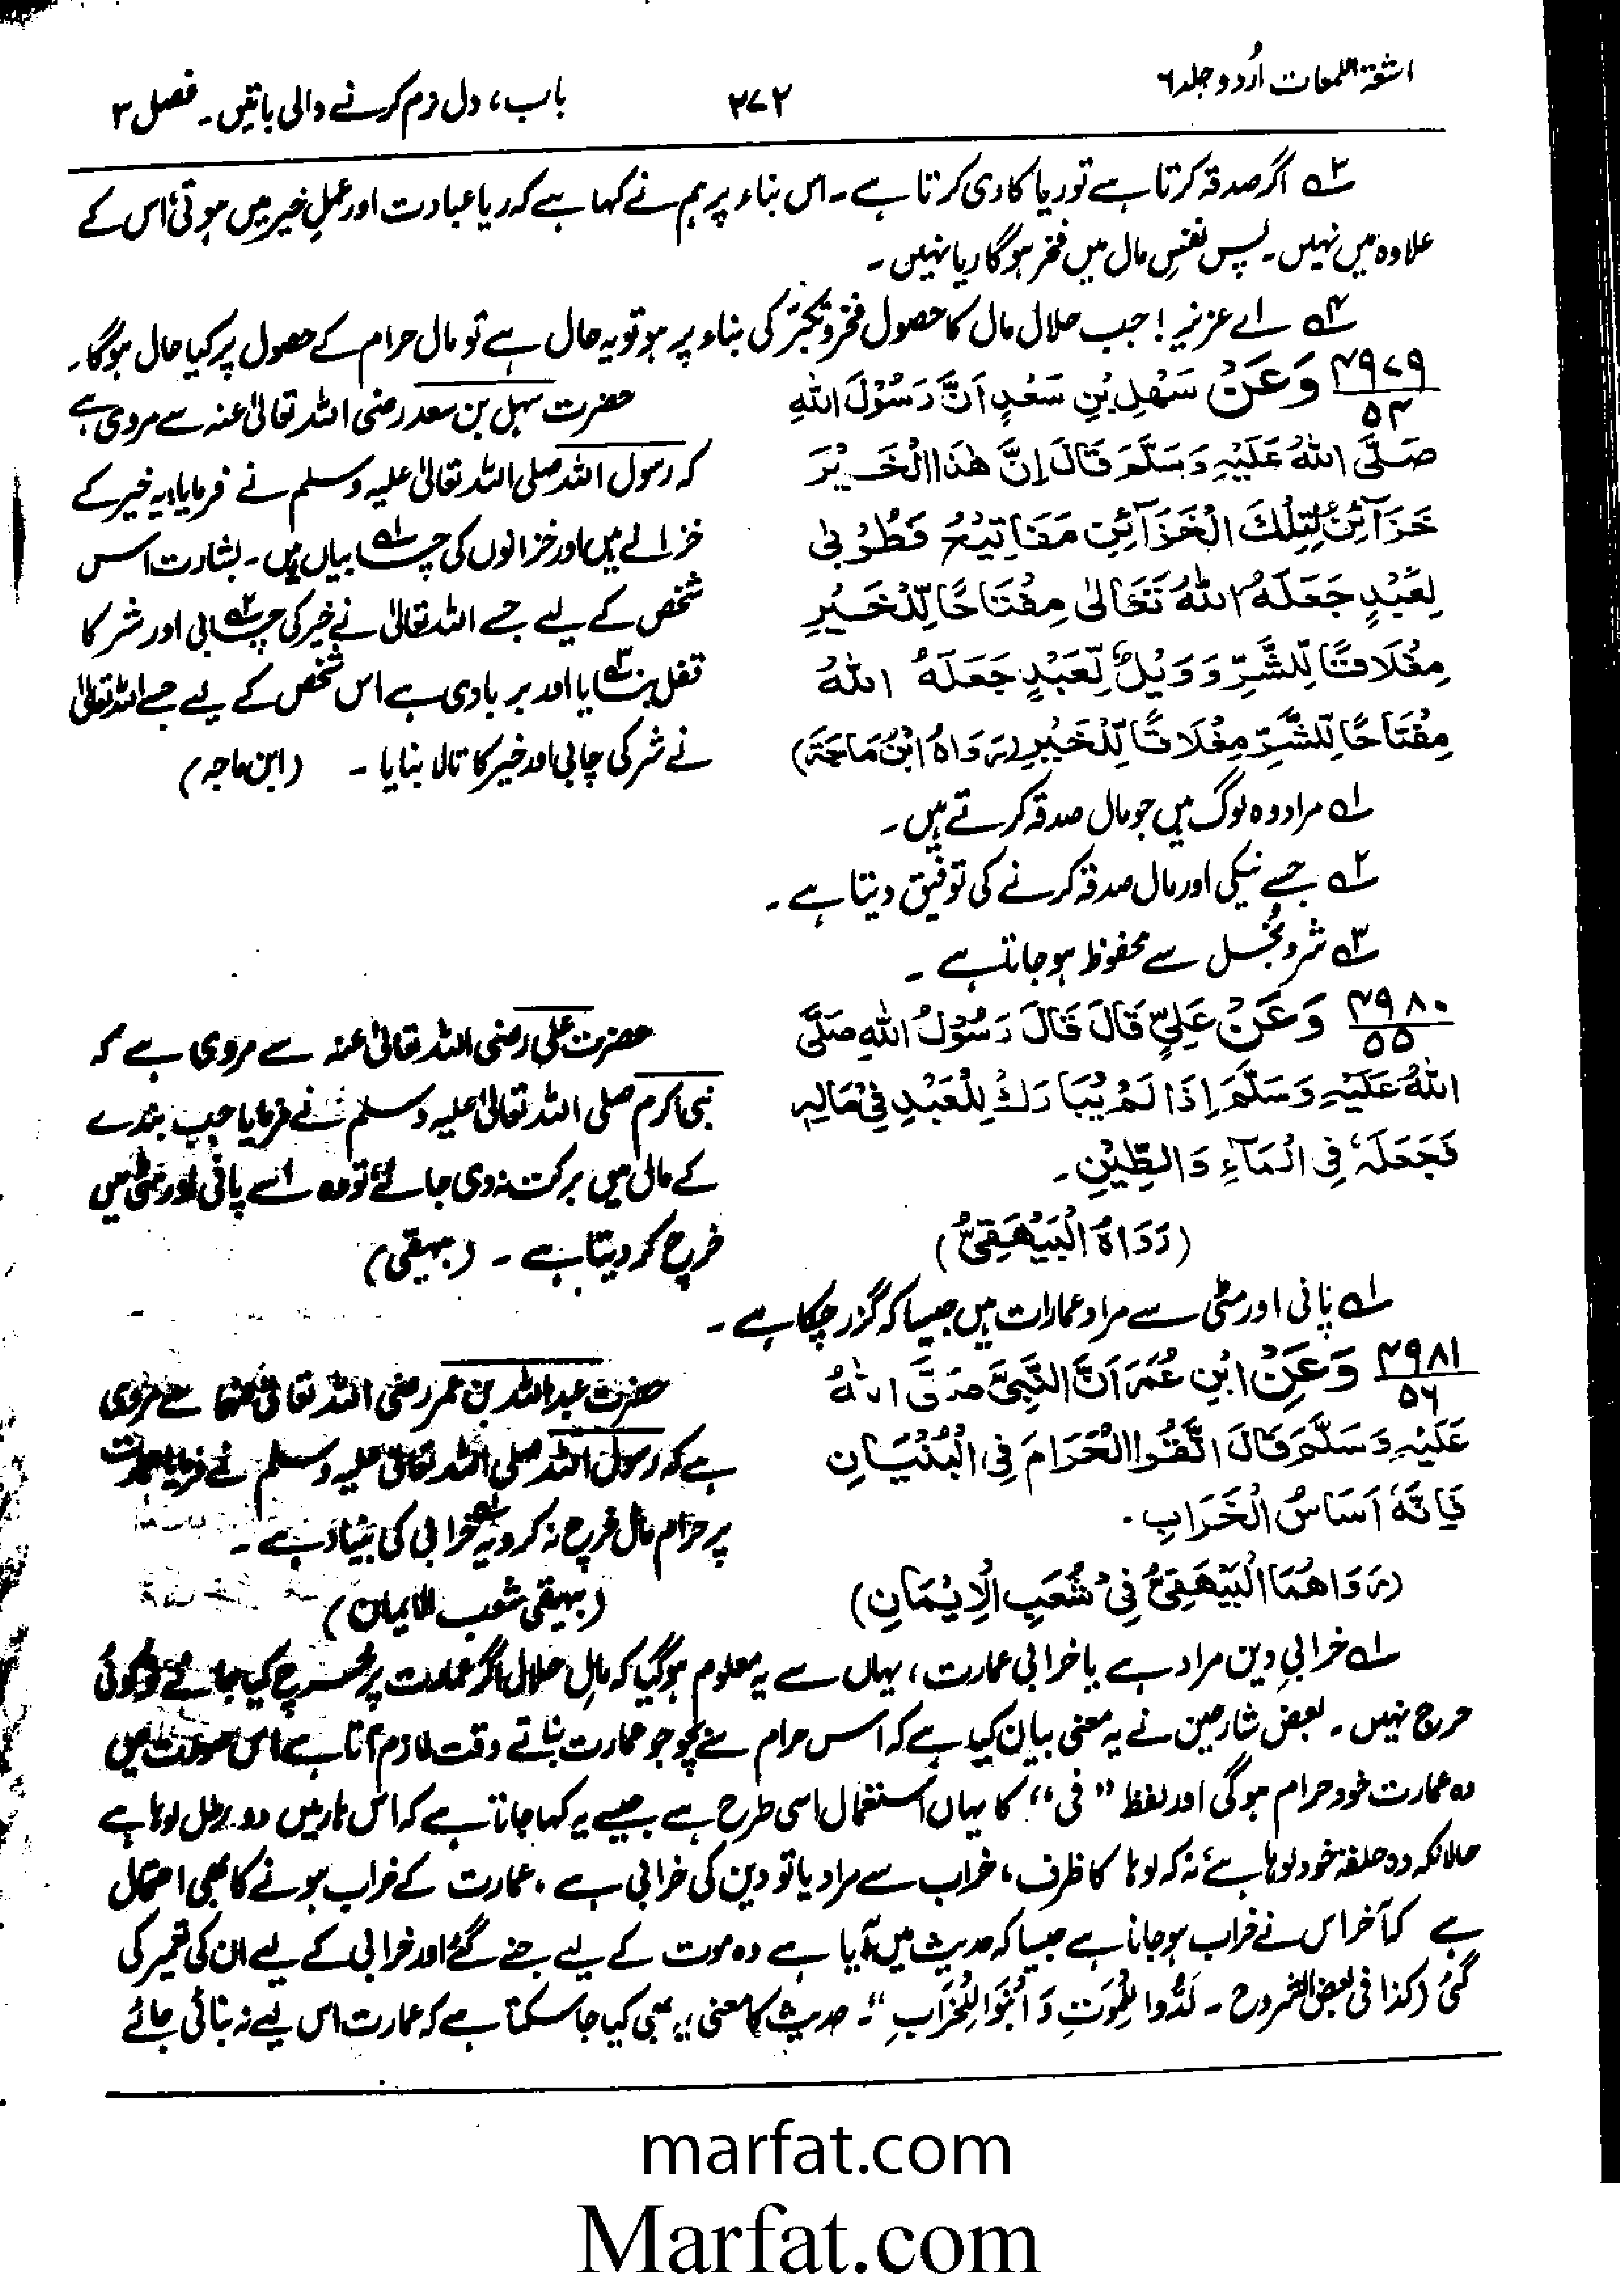 اشعۃ اللمعات اُردو جلد ٦
٢٧٢
باب، دل نرم کرنے والی باتیں۔ فصل ٣
٣ے اگر صدقہ کرتا ہے تو ریا کاری کرتا ہے۔ اس بناء پر ہم نے کہا ہے کہ ریا عبادت اور عملِ خیر میں ہوتی اس کے
علاوہ میں نہیں۔ پس نفسِ مال میں فخر ہوگا ریا نہیں۔
٤ے اے عزیز! جب حلال مال کا حصول فخر و تکبّر کی بناء پر ہو تو یہ حال ہے تو مال حرام کے حصول پر کیا حال ہوگا۔
٤٩٧٩
٥٤
وَعَنْ سَهْلِ بْنِ سَعْدٍ اَنَّ رَسُوْلَ اللهِ
صَلَّى اللهُ عَلَيْهِ وَسَلَّمَ قَالَ اِنَّ هٰذَا الْخَيْرَ
خَزَآئِنُ لِتِلْكَ الْخَزَآئِنِ مَفَاتِيْحُ فَطُوْبٰى
لِعَبْدٍ جَعَلَهُ اللهُ تَعَالٰى مِفْتَاحًا لِّلْخَيْرِ
مِغْلَاقًا لِّلشَّرِّ وَوَيْلٌ لِّعَبْدٍ جَعَلَهُ اللهُ
مِفْتَاحًا لِّلشَّرِّ مِغْلَاقًا لِّلْخَيْرِ (رَوَاهُ ابْنُ مَاجَةَ)
حضرت سہل بن سعد رضی اللہ تعالیٰ عنہ سے مروی ہے
کہ رسول اللہ صلی اللہ تعالیٰ علیہ وسلم نے فرمایا، یہ خیر کے
خزانے ہیں اور خزانوں کی چابیاں ہیں۔ بشارت اس
شخص کے لیے جسے اللہ تعالیٰ نے خیر کی چابی اور شر کا
قفل بنایا اور بربادی ہے اس شخص کے لیے جسے اللہ تعالیٰ
نے شر کی چابی اور خیر کا تالا بنایا۔ (ابن ماجہ)
١ے مراد وہ لوگ ہیں جو مال صدقہ کرتے ہیں۔
٢ے جسے نیکی اور مال صدقہ کرنے کی توفیق دیتا ہے۔
٣ے شر و بُخل سے محفوظ ہو جاتا ہے۔
٤٩٨٠
٥٥
وَعَنْ عَلِيٍّ قَالَ قَالَ رَسُوْلُ اللهِ صَلَّى
اللهُ عَلَيْهِ وَسَلَّمَ اِذَا لَمْ يُبَارَكْ لِلْعَبْدِ فِيْ مَالِهٖ
فَجَعَلَهٗ فِى الْمَآءِ وَالطِّيْنِ۔
(رَوَاهُ الْبَيْهَقِىُّ)
حضرت علی رضی اللہ تعالیٰ عنہ سے مروی ہے کہ
نبی اکرم صلی اللہ تعالیٰ علیہ وسلم نے فرمایا جب بندے
کے مال میں برکت نہ دی جائے تو وہ اسے پانی اور مٹی میں
خرچ کر دیتا ہے۔ (بیہقی)
١ے پانی اور مٹی سے مراد عمارات ہیں جیسا کہ گزر چکا ہے۔
٤٩٨١
٥٦
وَعَنِ ابْنِ عُمَرَ اَنَّ النَّبِىَّ صَلَّى اللهُ
عَلَيْهِ وَسَلَّمَ قَالَ اتَّقُوا الْحَرَامَ فِى الْبُنْيَانِ
فَاِنَّهٗ اَسَاسُ الْخَرَابِ۔
(رَوَاهُمَا الْبَيْهَقِىُّ فِىْ شُعَبِ الْاِيْمَانِ)
حضرت عبداللہ بن عمر رضی اللہ تعالیٰ عنہما سے مروی
ہے کہ رسول اللہ صلی اللہ تعالیٰ علیہ وسلم نے فرمایا عمارت
پر حرام مال خرچ نہ کرو یہ خرابی کی بنیاد ہے۔
(بیہقی شعب الایمان)
١ے خرابی دین مراد ہے یا خرابی عمارت، یہاں سے یہ معلوم ہوگیا کہ مالِ حلال اگر عمارت پر خرچ کیا جائے تو کوئی
حرج نہیں۔ بعض شارحین نے یہ معنی بیان کیا ہے کہ اس حرام سے بچو جو عمارت بناتے وقت لازم آتا ہے اس صورت میں
وہ عمارت خود حرام ہوگی اور لفظ "فی" کا یہاں استعمال اسی طرح ہے جیسے یہ کہا جاتا ہے کہ اس ہار میں دو رطل لوہا ہے
حالانکہ وہ حلقہ خود لوہا ہے نہ کہ لوہا کا ظرف، خراب سے مراد یا تو دین کی خرابی ہے، عمارت کے خراب ہونے کا بھی احتمال
ہے کہ آخر اس نے خراب ہو جانا ہے جیسا کہ حدیث میں آیا ہے وہ موت کے لیے جنے گئے اور خرابی کے لیے ان کی تعمیر کی
گئی (کذا فی بعض الشروح۔ لَدُّوا لِلْمَوْتِ وَابْنُوا لِلْخَرَابِ"۔ حدیث کا معنی یہ بھی کیا جا سکتا ہے کہ عمارت اس لیے نہ بنائی جائے
marfat.com
Marfat.com